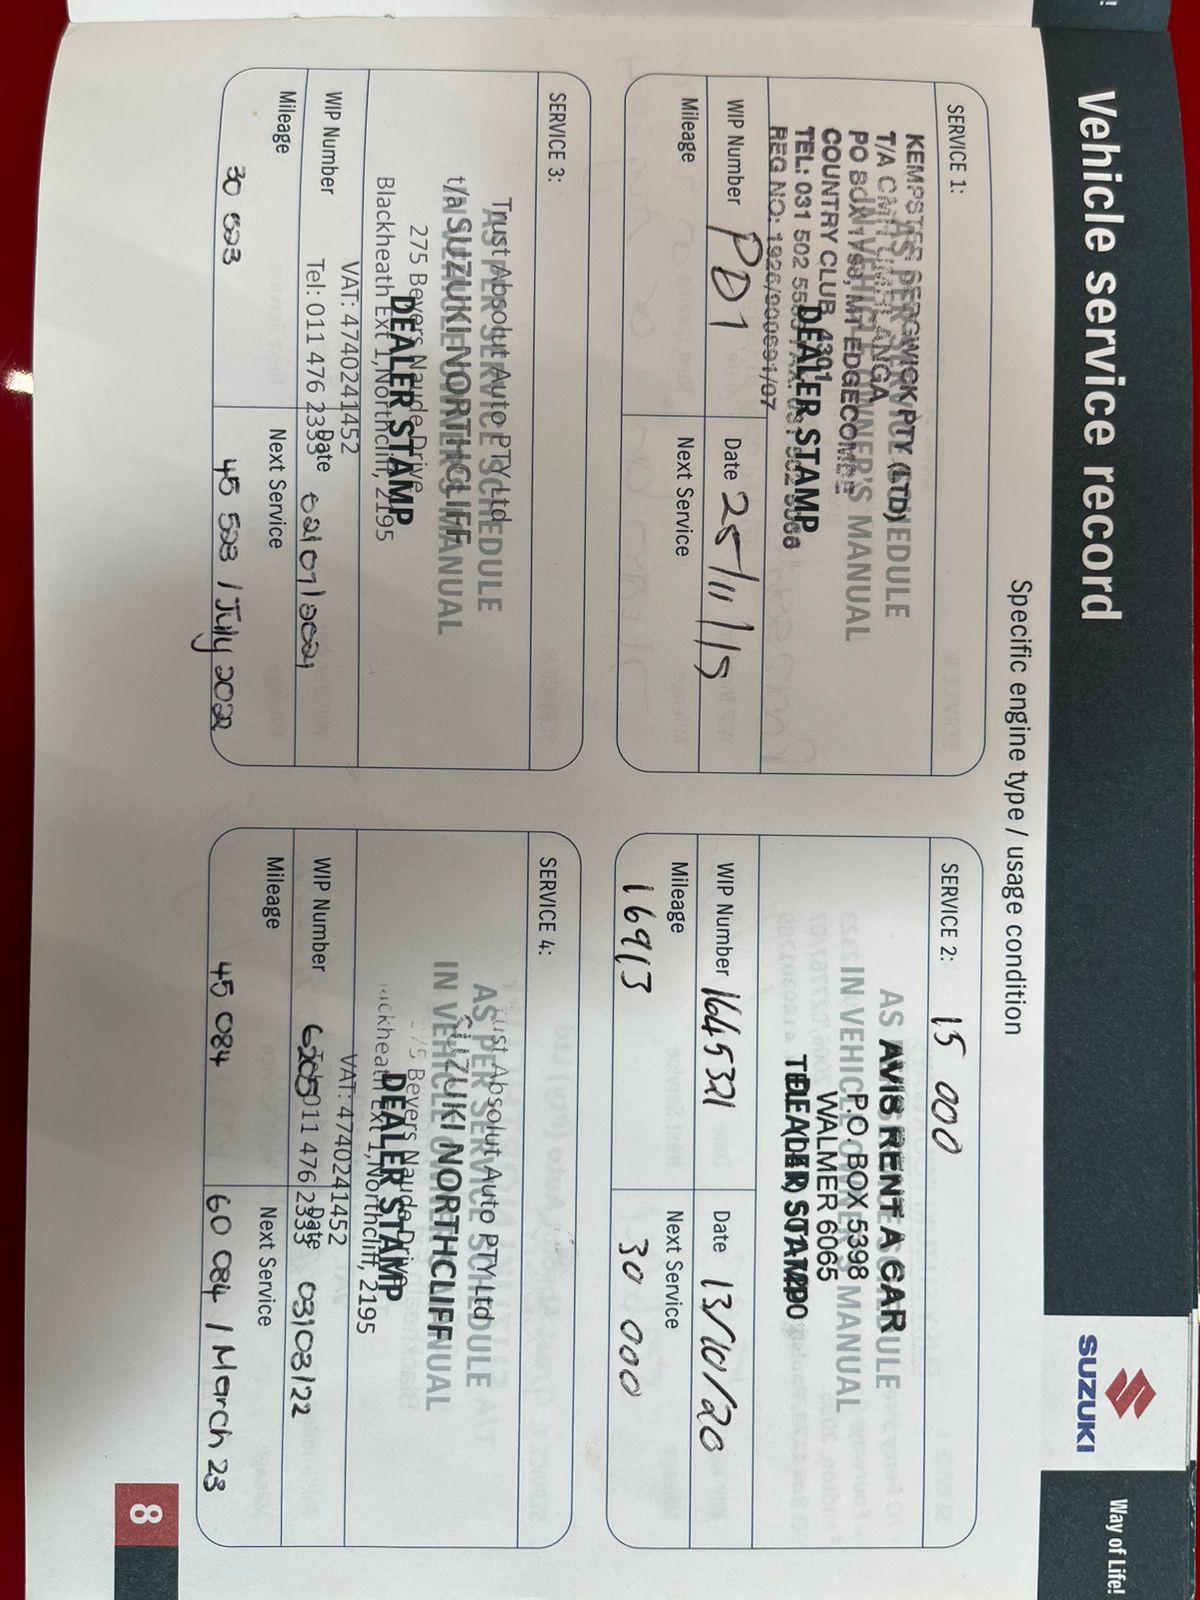 Vehicle service record
SUZUKI
Way of Life!
Specific engine type / usage condition
SERVICE 1:
AS PER SERVICE SCHEDULE
IN VEHICLE OWNER'S MANUAL
DEALER STAMP
KEMPSTER SEDGWICK PTY (LTD)
T/A CMH UMHLANGA
PO BOX 1793, MT EDGECOMBE
COUNTRY CLUB, 4301
TEL: 031 502 5583 FAX: 031 502 5066
REG NO: 1926/000691/07
WIP Number PD1
Date 25/11/19
Mileage
Next Service
SERVICE 2: 15 000
AS PER SERVICE SCHEDULE
IN VEHICLE OWNER'S MANUAL
DEALER STAMP
AVIS RENT A CAR
P.O. BOX 5398
WALMER 6065
WIP Number 1645321
Date 13/10/20
Mileage
16913
Next Service
30 000
SERVICE 3:
AS PER SERVICE SCHEDULE
IN VEHICLE OWNER'S MANUAL
DEALER STAMP
Trust Absolut Auto PTY Ltd
t/a SUZUKI NORTHCLIFF
275 Beyers Naude Drive
Blackheath Ext 1, Northcliff, 2195
VAT: 4740241452
Tel: 011 476 2333
WIP Number
Date 02/07/2021
Mileage
30 523
Next Service
45 523 / July 2022
SERVICE 4:
AS PER SERVICE SCHEDULE
IN VEHICLE OWNER'S MANUAL
DEALER STAMP
Trust Absolut Auto PTY Ltd
SUZUKI NORTHCLIFF
275 Beyers Naude Drive
Blackheath Ext 1, Northcliff, 2195
VAT: 4740241452
011 476 2333
WIP Number 6205
Date 03/03/22
Mileage
45 084
Next Service
60 084 / March 23
8